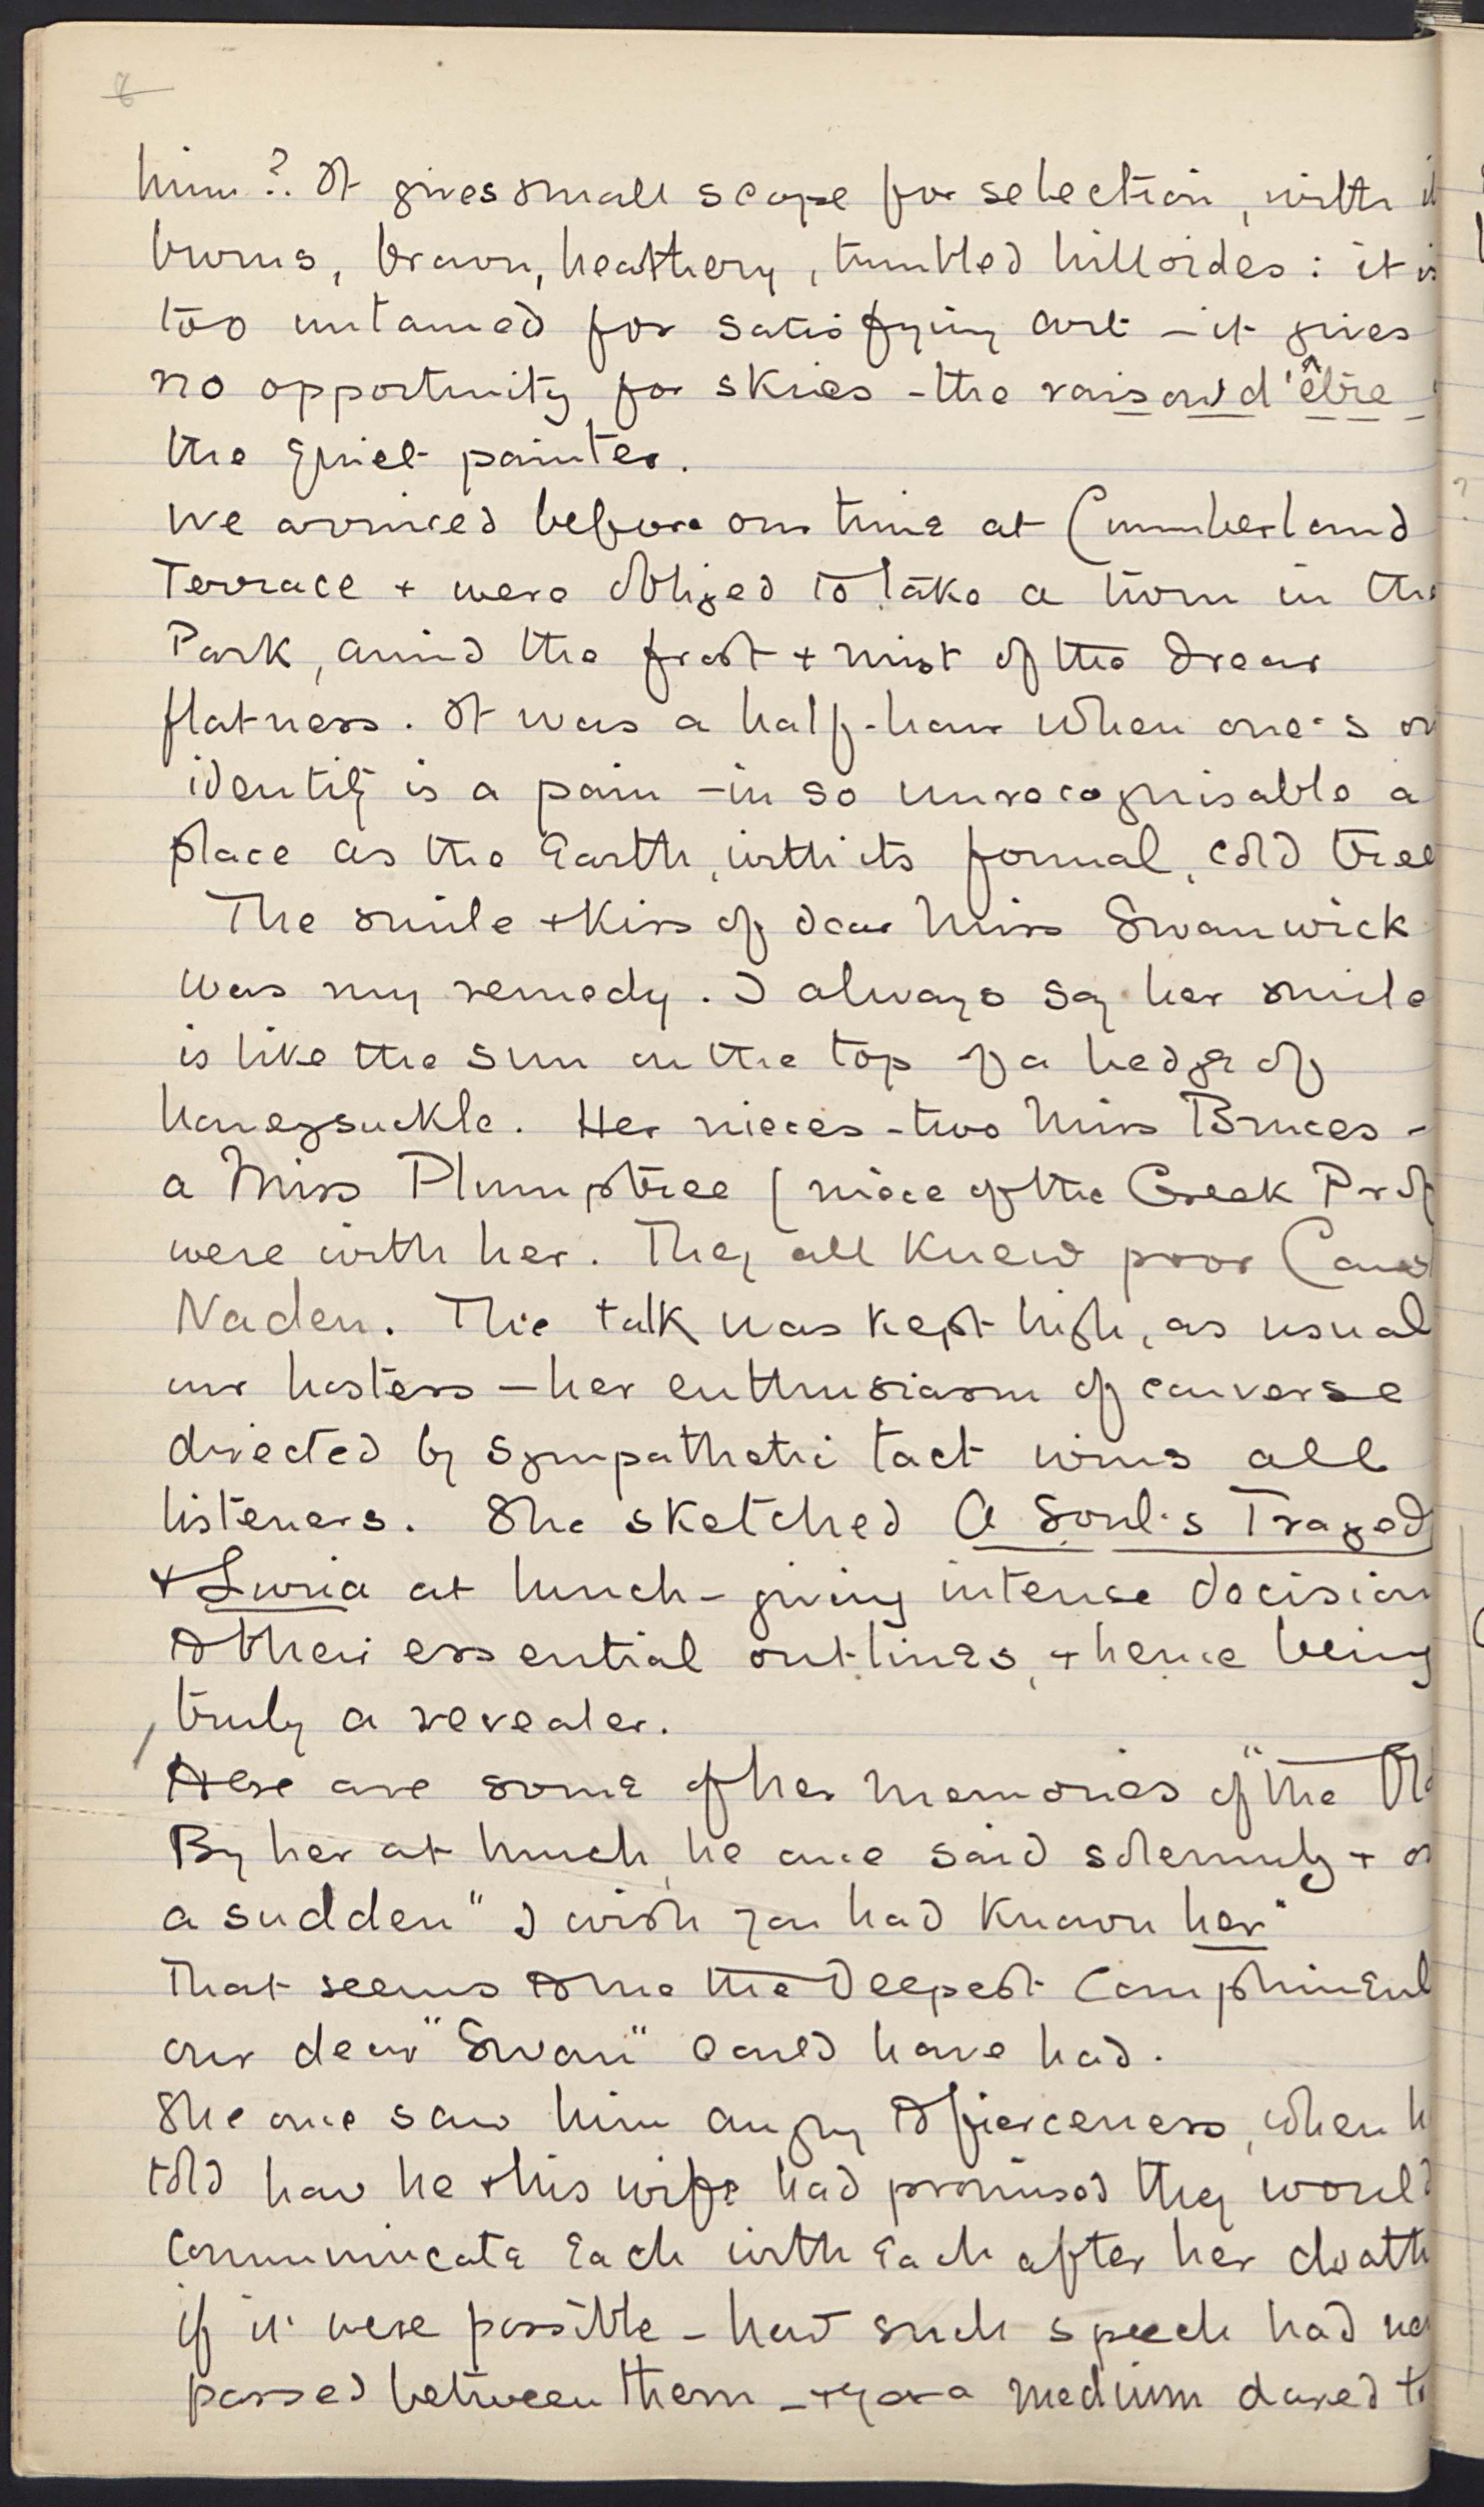 8
him?. It gives small scope for selection, with
burns, brown, heathery, tumbled hillsides: it is
too untamed for satisfying art – it gives
no opportunity for skies – the raison d'être
the quiet painter.
We arrived before our time at Cumberland
Terrace + were obliged to take a turn in the
Park, amid the frost + mist of the drear
flatness. It was a half-hour when one's own
identity is a pain – in so unrecognisable a
place as the Earth, with its formal, cold tree
The smile + kiss of dear Miss Swanwick
was my remedy. I always say her smile
is like the sun on the top of a hedge of
honeysuckle. Her nieces – two Miss Bruces –
a Miss Plumptree (niece of the Greek Prof
were with her. They all knew poor
Naden. The talk was kept high, as usual
our hostess – her enthusiasm of converse
directed by sympathetic tact wins all
listeners. She sketched A Soul's Tragedy
+ Luria at lunch – giving intense decision
to their essential outlines, + hence being
truly a revealer.
Here are some of her memories of "the Old
By her at lunch, he once said solemnly + on
a sudden "I wish you had known her"
That seems to me the deepest compliment
our dear "Swan" could have had.
She once saw him angry to fierceness, when he
told how he + his wife had promised they would
communicate Each with Each after her death
if it were possible – how such speech had
passed between them – + yet a medium dared to